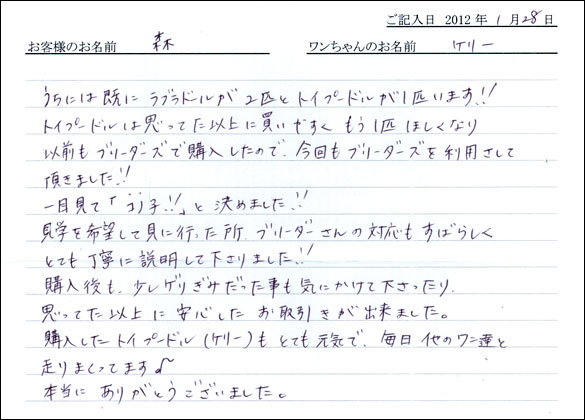 ご記入日 2012年 1月28日
お客様のお名前 森 ワンちゃんのお名前 ケリー
うちには既に ラブラドールが 2匹と トイプードルが1匹います!!
トイプードルは思ってた以上に買いやすく もう1匹ほしくなり
以前も ブリーダーズで購入したので、今回もブリーダーズを利用さして
頂きました!!
一目見て「コノ子!!」と 決めました!!
見学を希望して見に行った所、ブリーダーさんの対応も すばらしく
とても丁寧に説明して下さりました!!
購入後も、少しゲリぎみだった事も気にかけて下さったり、
思ってた以上に 安心した お取引きが出来ました。
購入したトイプードル(ケリー)も とても元気で、毎日 他のワン達と
走りまくってます♪
本当に ありがとうございました。